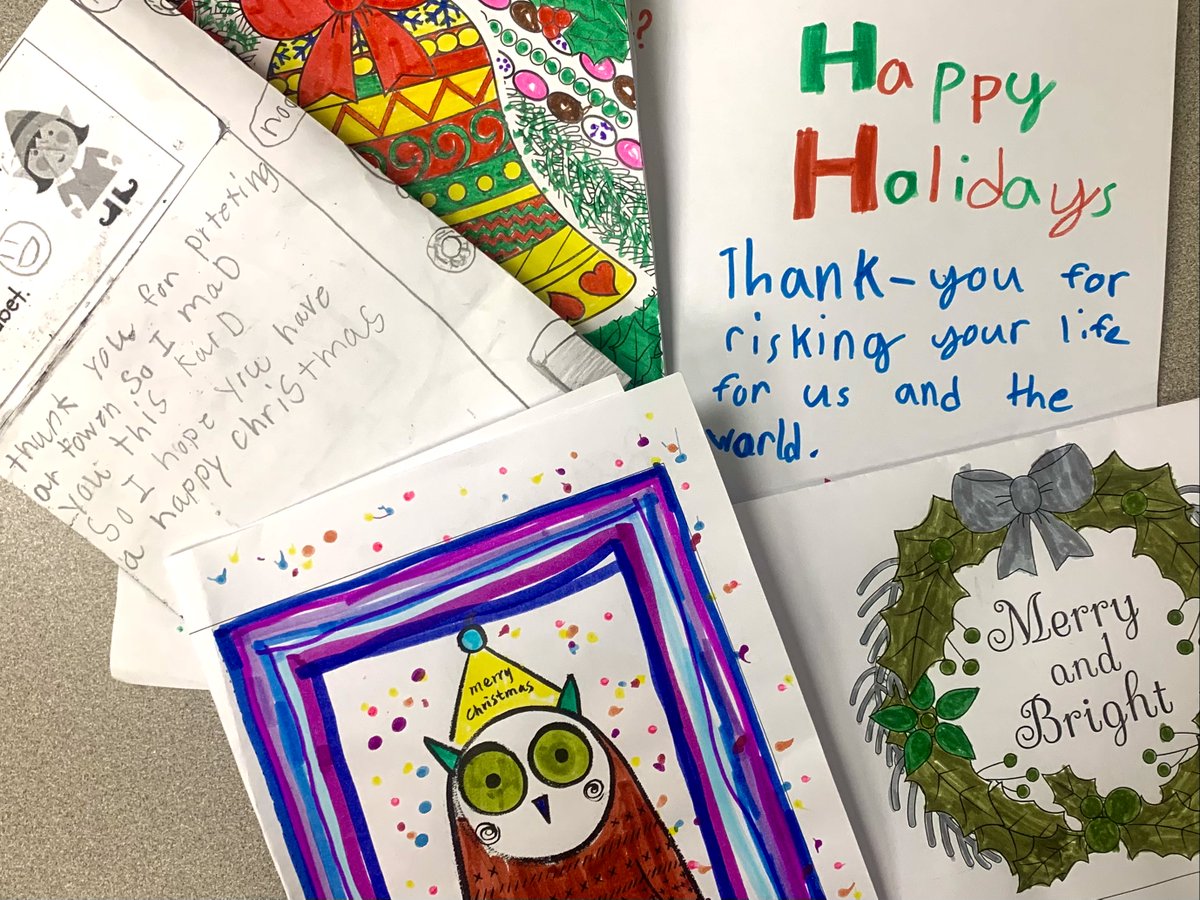 thank you for prteting
our towen so I maD
you this karD
So I hope you have
a happy christmas
?
Happy
Holidays
Thank-you for
risking your life
for us and the
world.
merry
Christmas
Merry
and
Bright